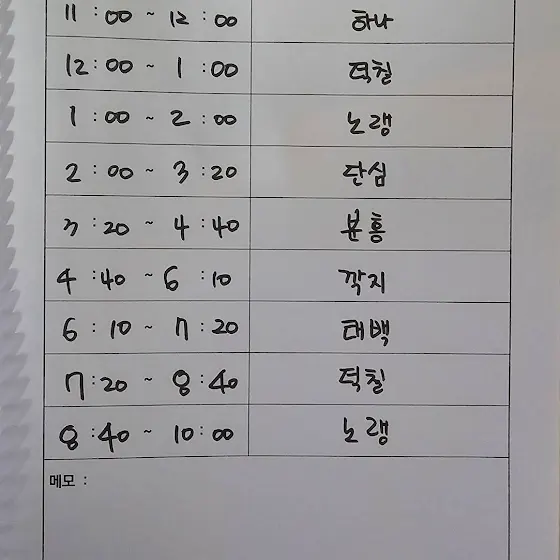 11 : 00 ~ 12 : 00 하나
12 : 00 ~ 1 : 00 덕칠
1 : 00 ~ 2 : 00 노랭
2 : 00 ~ 3 : 20 단심
3 : 20 ~ 4 : 40 분홍
4 : 40 ~ 6 : 10 깍지
6 : 10 ~ 7 : 20 태백
7 : 20 ~ 8 : 40 덕칠
8 : 40 ~ 10 : 00 노랭
메모 :